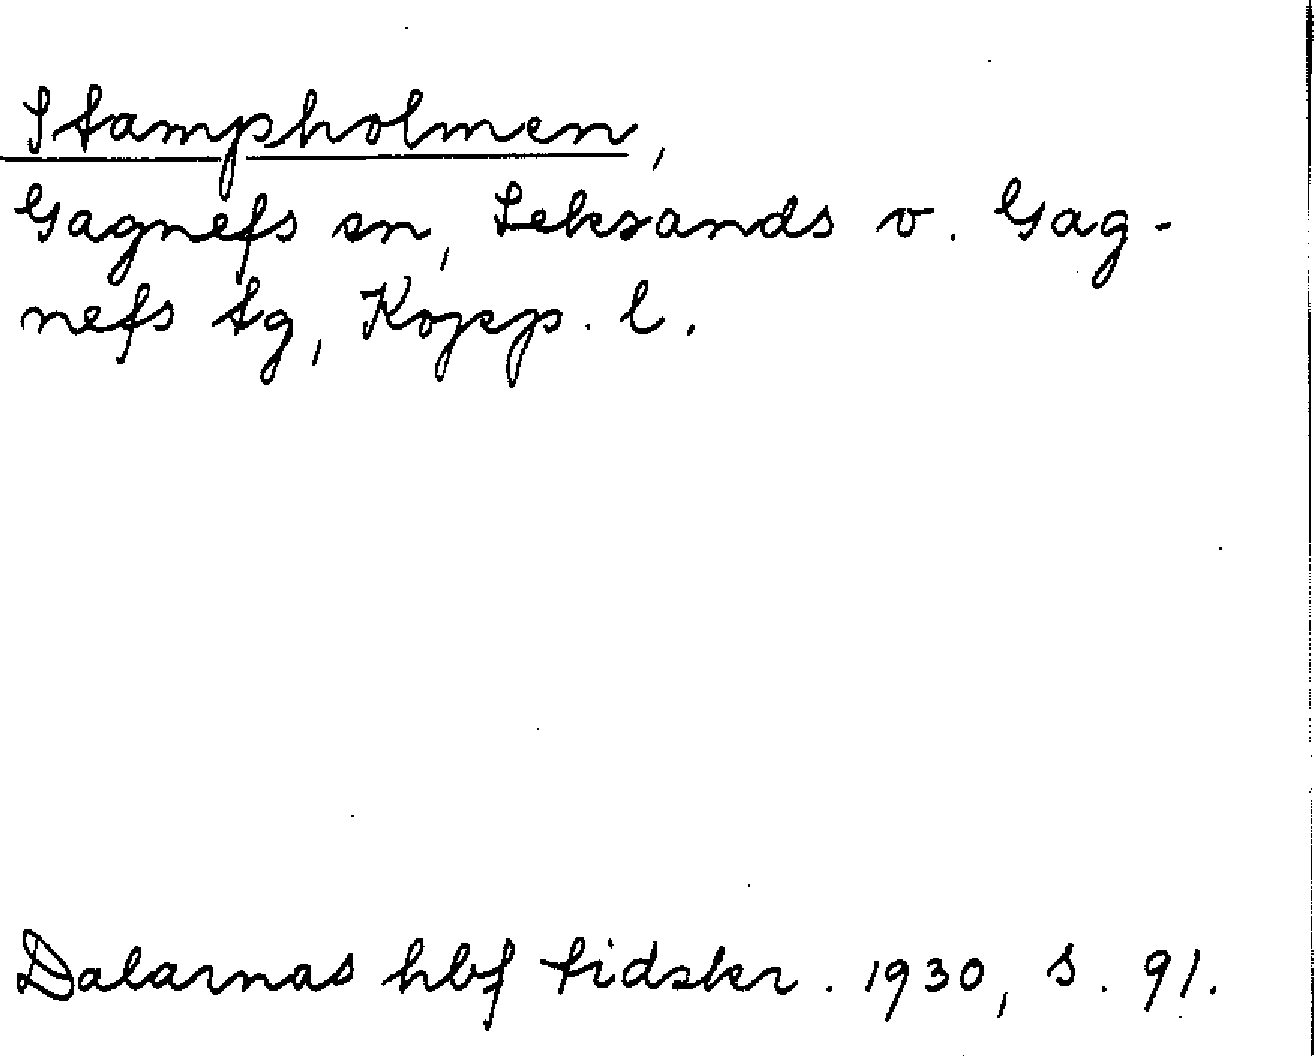 Stampholmen,
Gagnefs sn, Leksands o. Gag-
nefs tg, Kopp. l.
Dalarnas hbf tidskr. 1930, s. 91.